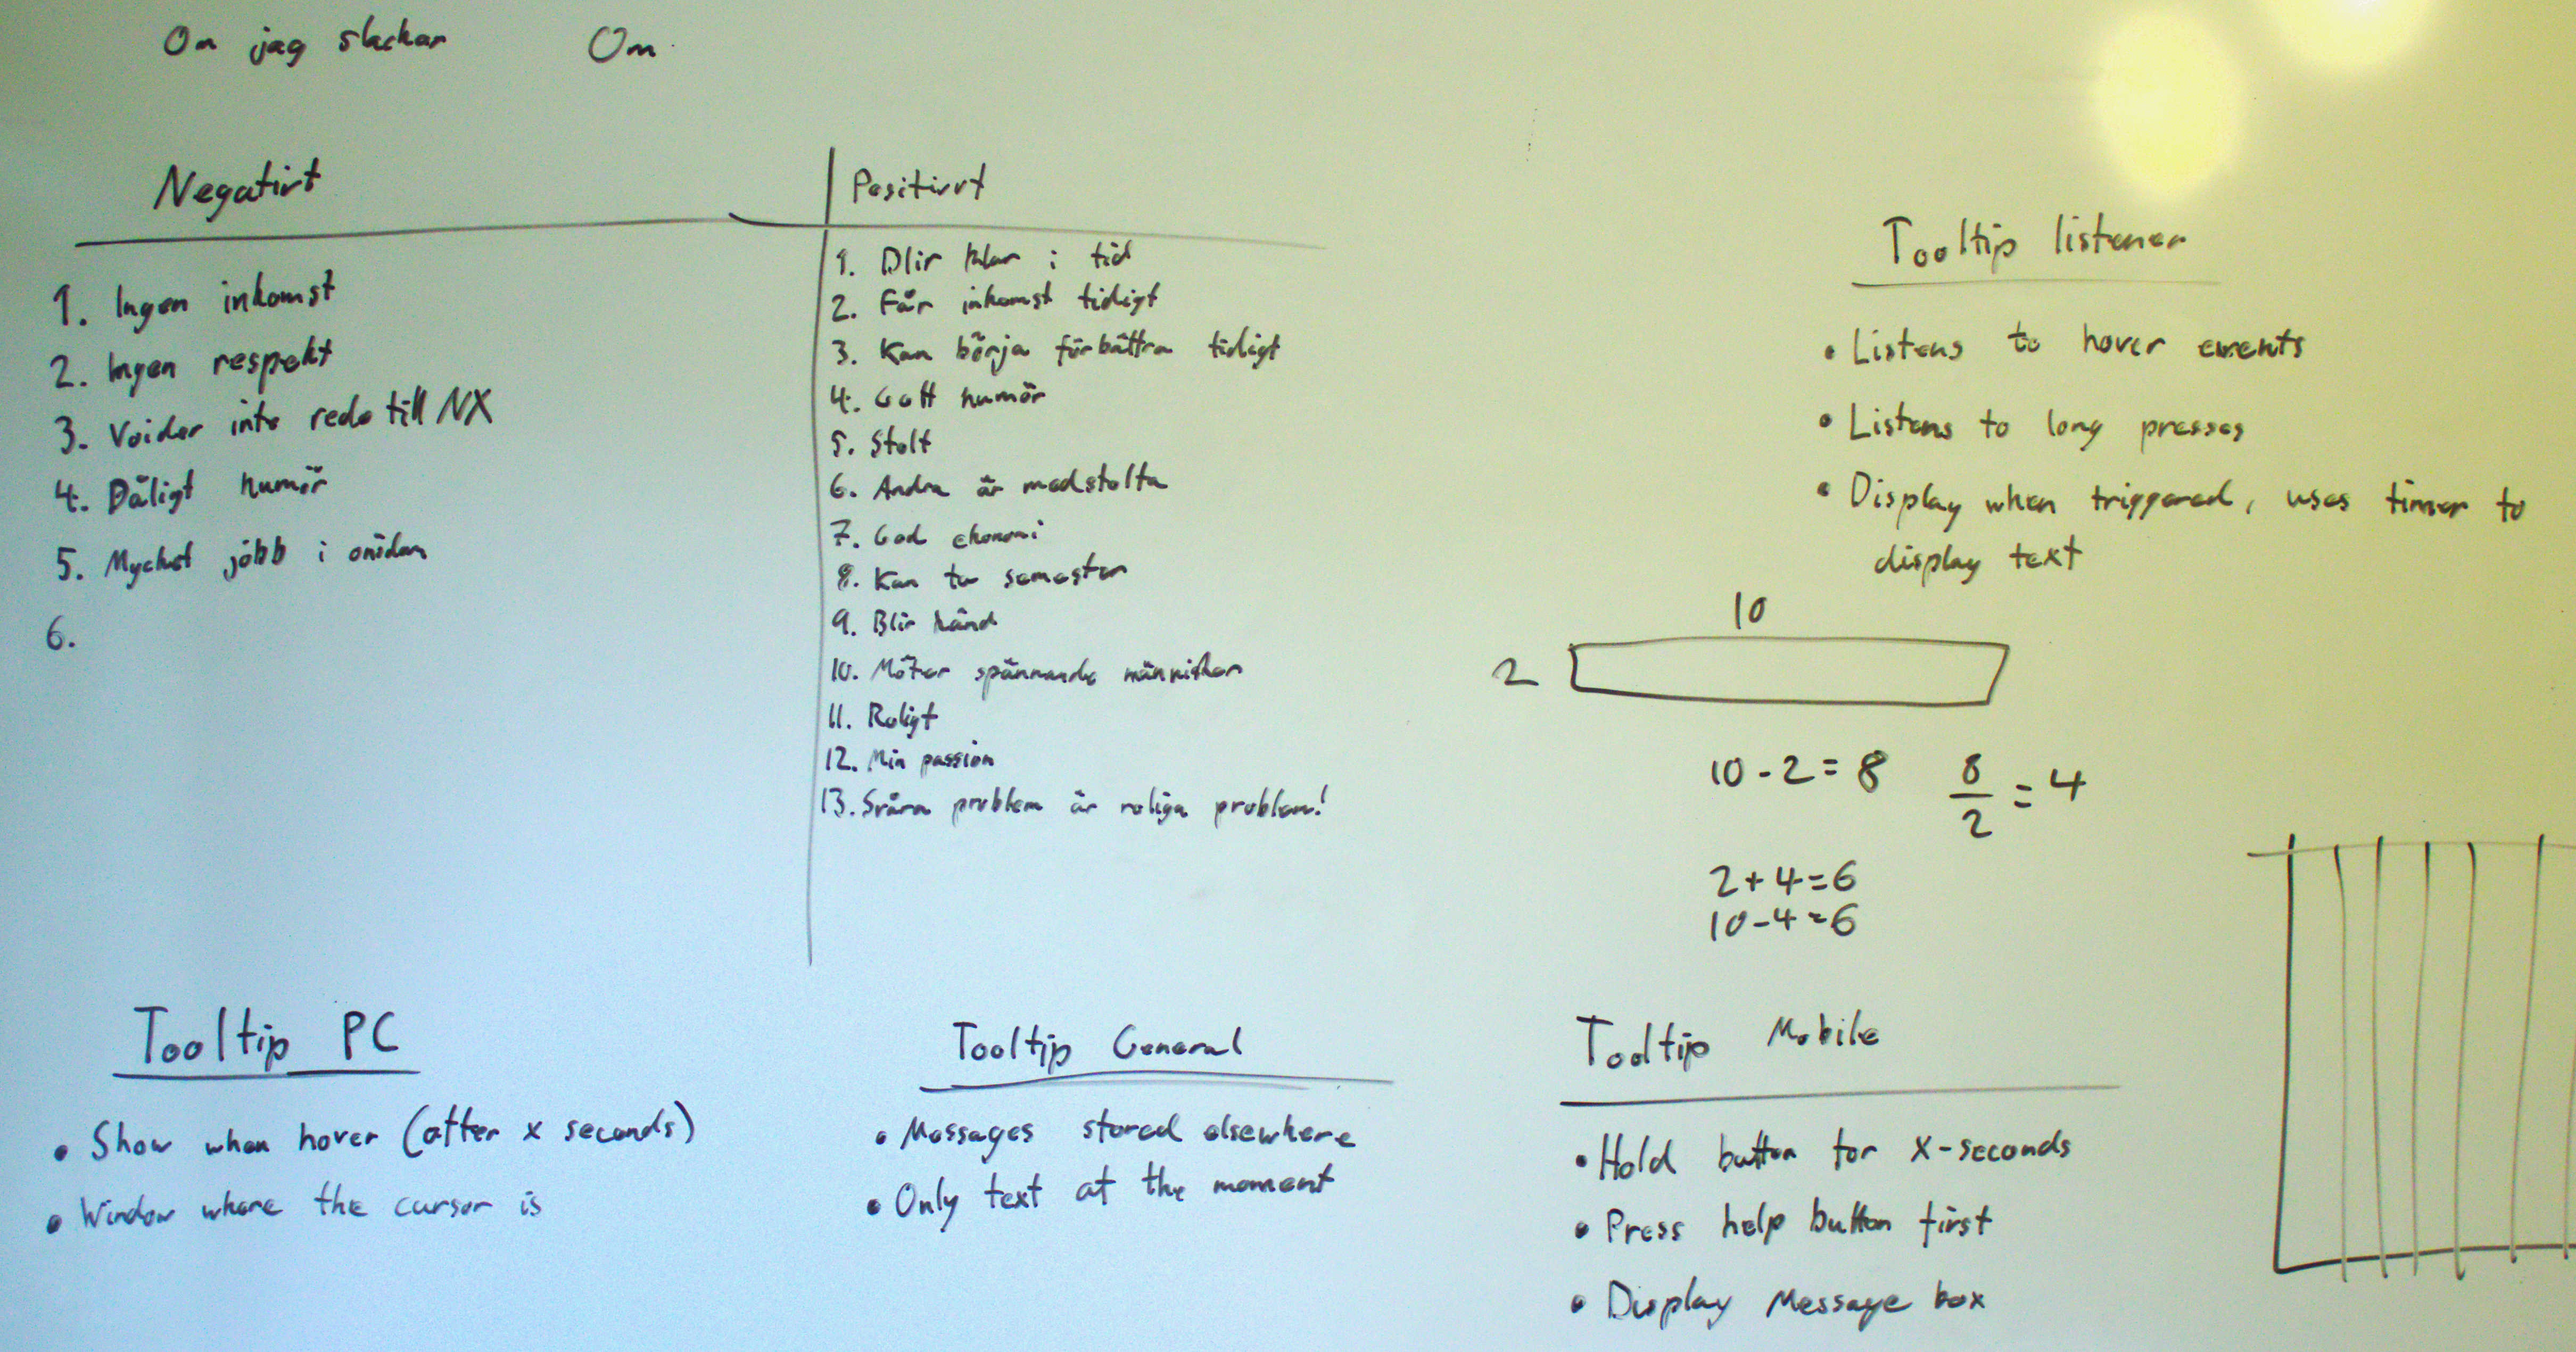 Om jag slackar
Om
Negativt
1. Ingen inkomst
2. Ingen respekt
3. Voider inte redo till NX
4. Dåligt humör
5. Mycket jobb i onödan
6.
Positivt
1. Blir klar i tid
2. Får inkomst tidigt
3. Kan börja förbättra tidigt
4. Gott humör
5. Stolt
6. Andra är medstolta
7. God ekonomi
8. Kan ta semester
9. Blir känd
10. Möter spännande människor
11. Roligt
12. Min passion
13. Svåra problem är roliga problem!
Tooltip listener
• Listens to hover events
• Listens to long presses
• Display when triggered, uses timer to
display text
10
2
10-2=8 8/2=4
2+4=6
10-4=6
Tooltip PC
• Show when hover (after x seconds)
• Window where the cursor is
Tooltip General
• Messages stored elsewhere
• Only text at the moment
Tooltip Mobile
• Hold button for x-seconds
• Press help button first
• Display Message box